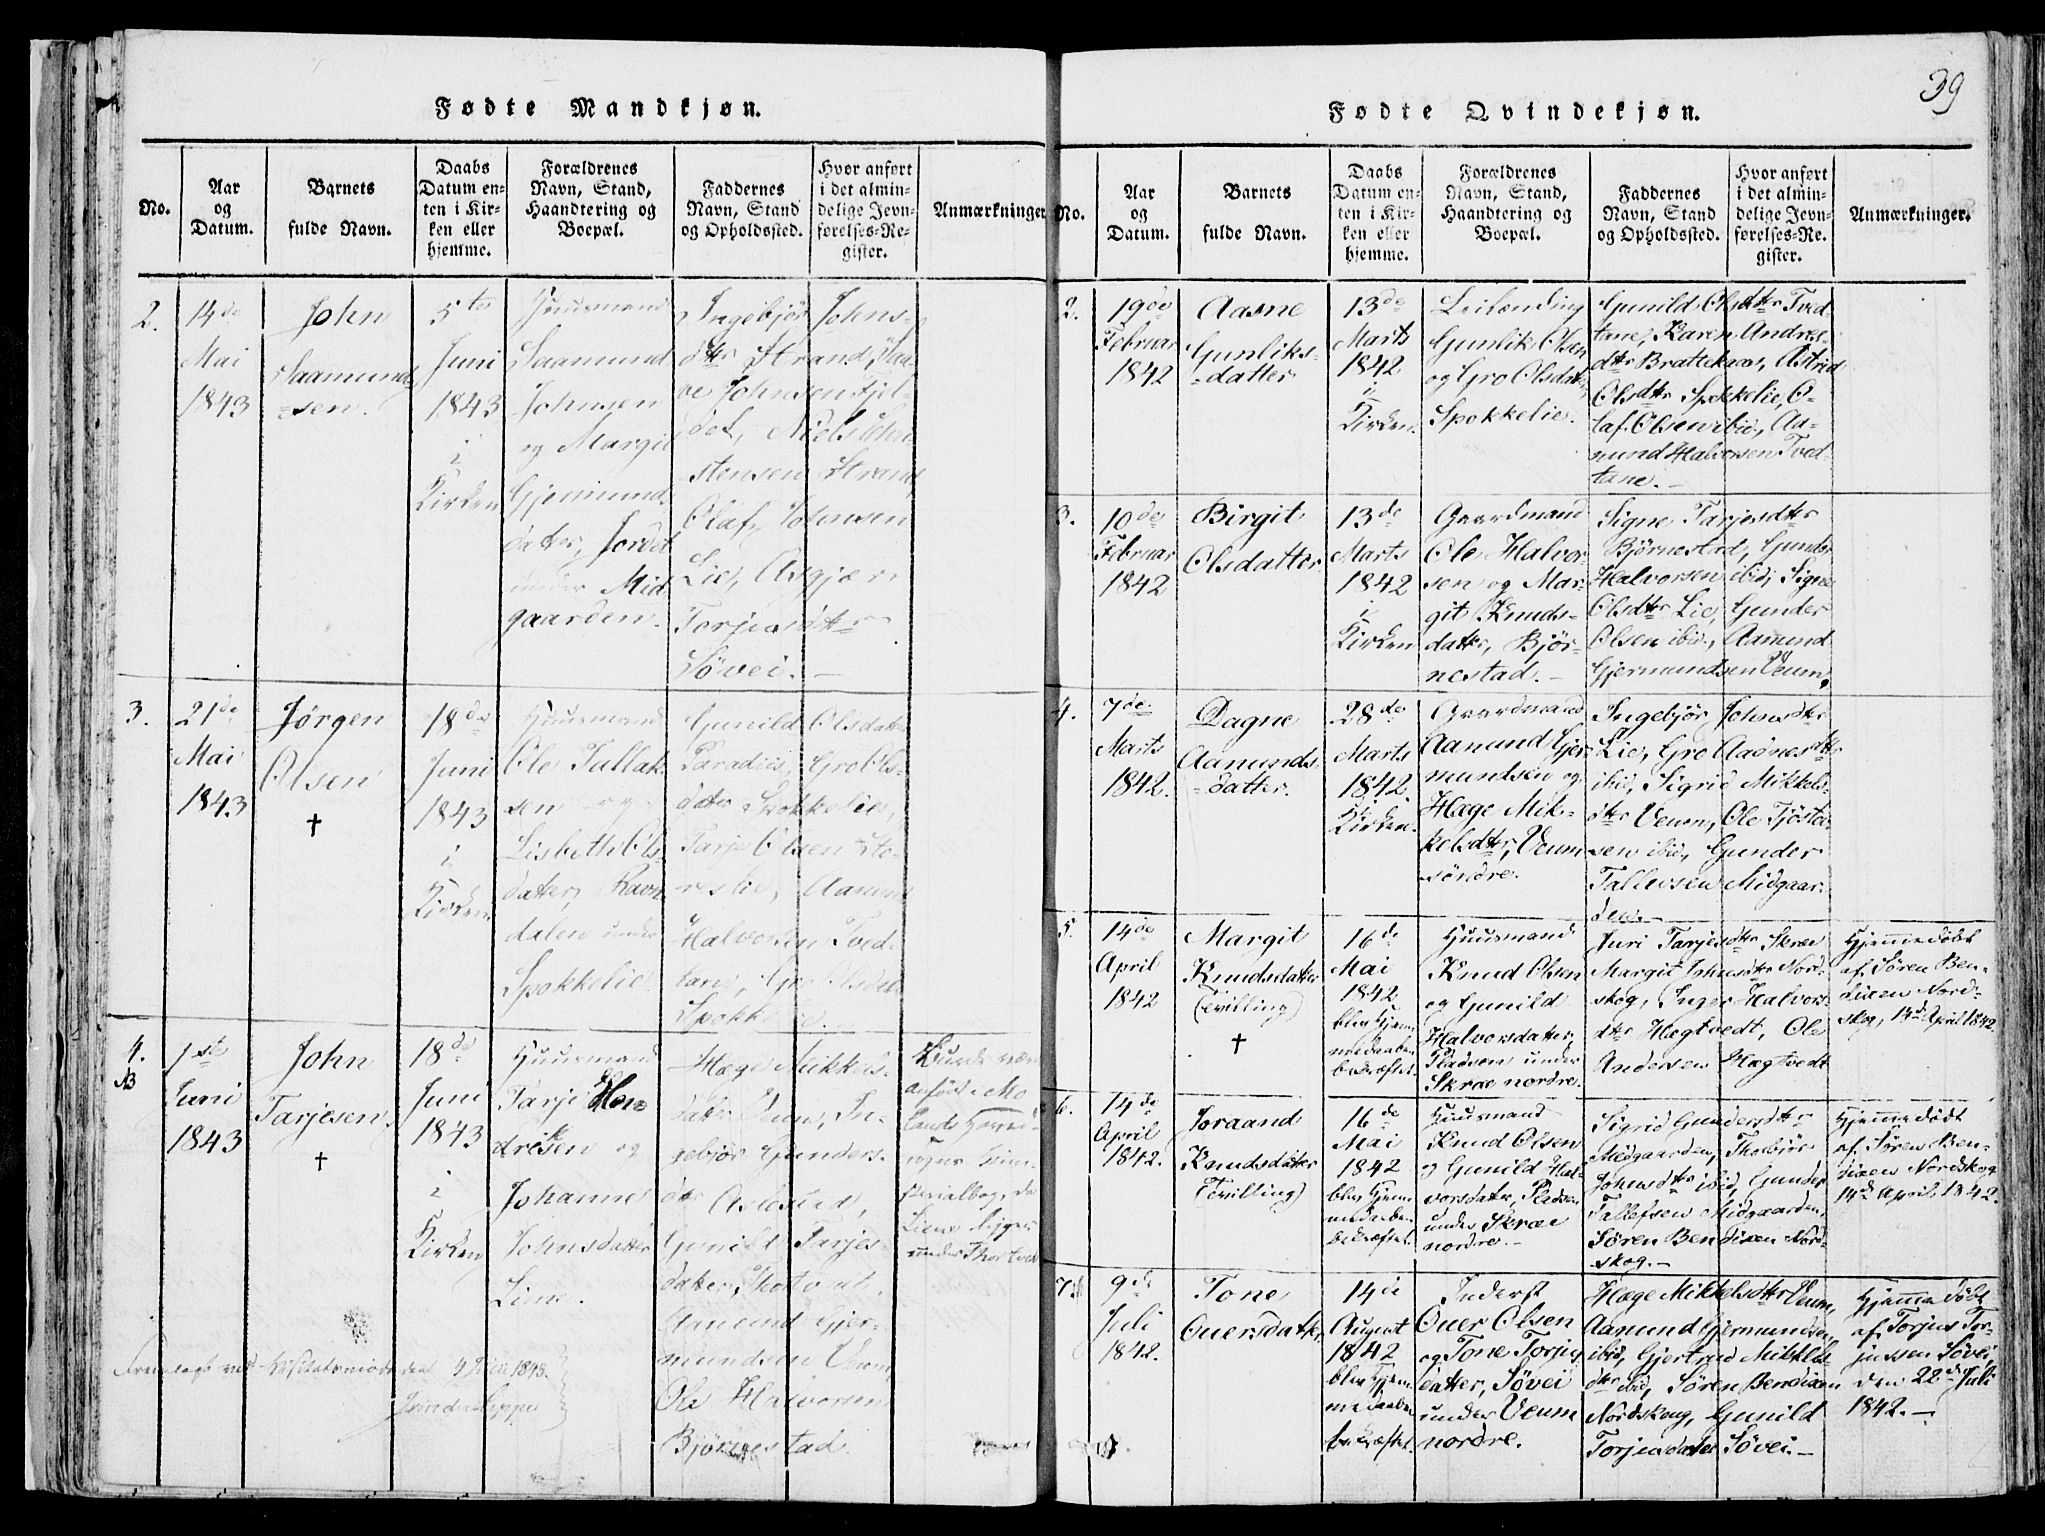 39
Fødte Mandkjøn.
No.
Aar
og
Datum.
Barnets
fulde Navn.
Daabs
Datum en-
ten i Kir-
ken eller
hjemme.
Forældrenes
Navn, Stand,
Haandtering og
Boepæl.
Faddernes
Navn, Stand
og Opholdssted.
Hvor anført
i det almin-
delige Jevn-
førelses-Re-
gister.
Anmærkninger
2.
14de
Mai
1843
John
Saamunds
=sen.
5te
Juni
1843
i
Kirken
Huusmand
Saamund
Johnsen
og Margit
Gjermunds
datter, Jordet
under Mid
gaarden.
Ingebjør Johns-
dtr Strand,
Johnsen Fjel-
det, Niels
stensen Strand
Olaf Johnsen
Lie, Asgjær
Torjusdtr
Søvei. —
3.
21de
Mai
1843
Jørgen
Olsen
†
18de
Juni
1843
i
Kirken
Huusmand
Ole Tallak-
sen og
Lisbeth Ols-
datter, Ravn
dalen under
Spokkelie
Gunild Olsdatter
Paradiis, Gro Ols-
datter Spokkelie,
Tarje Olsen
Aanund
Halvorsen Tved-
tane, Gro Olsdtr
Spokkelie.
4.
1ste
Juni
1843
John
Tarjesen.
†
18de
Juni
1843
i
Kirken
Huusmand
Tarje Hen
driksen og
Johanne
Johnsdatter
Liene.
Hæge Mikkels-
datter Veum, In-
gebjør Gunders-
dtr Aslestad,
Gunild Tarjes-
datter, Thortvedt,
Aanund Gjer-
mundsen Veum,
Ole Halvorsen
Bjørnestad.
Burde være
anført i Mo
Liene ligger
under Thortvedt
Fremlagt ved Visitatsmødet den 4 1843.
Fødte Qvindekjøn.
No.
Aar
og
Datum.
Barnets
fulde Navn.
Daabs
Datum en-
ten i Kir-
ken eller
hjemme.
Forældrenes
Navn, Stand,
Haandtering og
Boepæl.
Faddernes
Navn, Stand
og Opholdssted.
Hvor anført
i det almin-
delige Jevn-
førelses-Re-
gister.
Anmærkninger.
2.
19de
Februar
1842
Aasne
Gunliks-
=datter
13de
Marts
1842
i
Kirken.
Leilænding
Gunlik Olsen
og Gro Olsdatter
Spokkelie.
Gunild Olsdtr Tved
tane, Karen Andres-
dtr Bratteknæs, Astrid
Olsdtr Spokkelie, O-
laf Olsen ibid., Aa-
nund Halvorsen Tved-
tane. —
3.
10de
Februar
1842
Birgit
Olsdatter
13de
Marts
1842
i
Kirken
Gaardmand
Ole Halvor-
sen og Mar-
git Knuds-
datter, Bjør-
nestad. —
Signe Tarjesdtr
Bjørnestad, Gunder
Halvorsen ibid, Signe
Olsdtr Lie, Gunder
Olsen ibid., Aanund
Gjermundsen Veum.
4.
7de
Marts
1842.
Dagne
Aanunds-
=datter.
28de
Marts
1842.
Kirken.
Gaardmand
Aanund Gjer-
mundsen og
Hæge Mik-
kelsdtr, Veum
søndre.
Ingebjør Johnsdtr
Lie, Gro Aasnesdtr
ibid, Sigrid Mikkels-
dtr Veum, Ole Tjøsta-
sen ibid, Gunder
Tallevsen Midgaar-
den. —
5.
14de
April
1842
Margit
Knudsdatter
(Tvilling)
†
16de
Mai
1842.
blev Hjem-
medaaben
bekræftet.
Huusmand
Knud Olsen
og Gunild
Halvorsdatter,
Pladsen under
Skræe nordre.
Juri Tarjesdtr Skræe
Margit Johnsdtr Nord-
skog, Inger Halvors-
dtr Hægtvedt, Ole
Andersen Hægtvedt
Hjemmedøbt
af Søren Ben-
dixen Nord-
skog, 14de April 1842
6.
14de
April
1842.
Joraand
Knudsdatter
(Tvilling)
16de
Mai
1842
blev Hjem-
medaaben
bekræftet.
Huusmand
Knud Olsen
og Gunild Hal-
vorsdatter, Pladsen
under Skræe
nordre. —
Sigrid Gundersdtr
Midgaarden, Thorbjør
Johnsdtr ibid, Gunder
Tallefsen Midgaarden,
Søren Bendixen Nord-
skog. —
Hjemmedøbt
af Søren Ben-
dixen Nordskog
14de April 1842.
7.
9de
Juli
1842.
Tone
Ouersdatter
14de
August
1842
blev Hjem-
medaaben
bekræftet.
Inderst
Ouer Olsen
og Tone Torjus
datter, Søvei
under Veum
nordre.
Hæge Mikkelsdtr Veum,
Aanund Gjermundsen,
ibid, Gjertrud Mikkels
dtr ibid, Søren Bendixen
Nordskoug, Gunild
Torjusdatter Søvei —
Hjemmedøbt
af Torjus Tor-
jussen Søvei,
den 22de Juli
1842. —